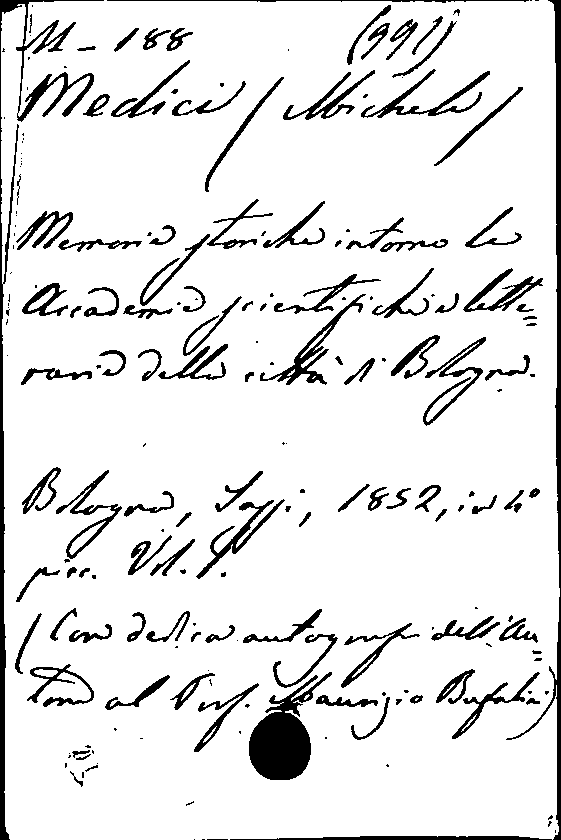 M - 188 (991)
Medici (Michele)
Memorie storiche intorno le
Accademie scientifiche e lette=
rarie della città di Bologna.
Bologna, Sassi, 1852, in 4°
picc. Vol. 1.
(Con dedica autografa dell'Au=
tore al Prof. Maurizio Bufalini)